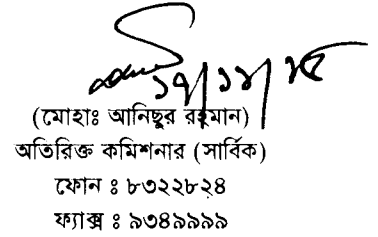 ১৭/১২/১৫
(মোহাঃ আনিছুর রহমান)
অতিরিক্ত কমিশনার (সার্বিক)
ফোন ঃ ৮৩২২৮২৪
ফ্যাক্স ঃ ৯৩৪৯৯৯৯